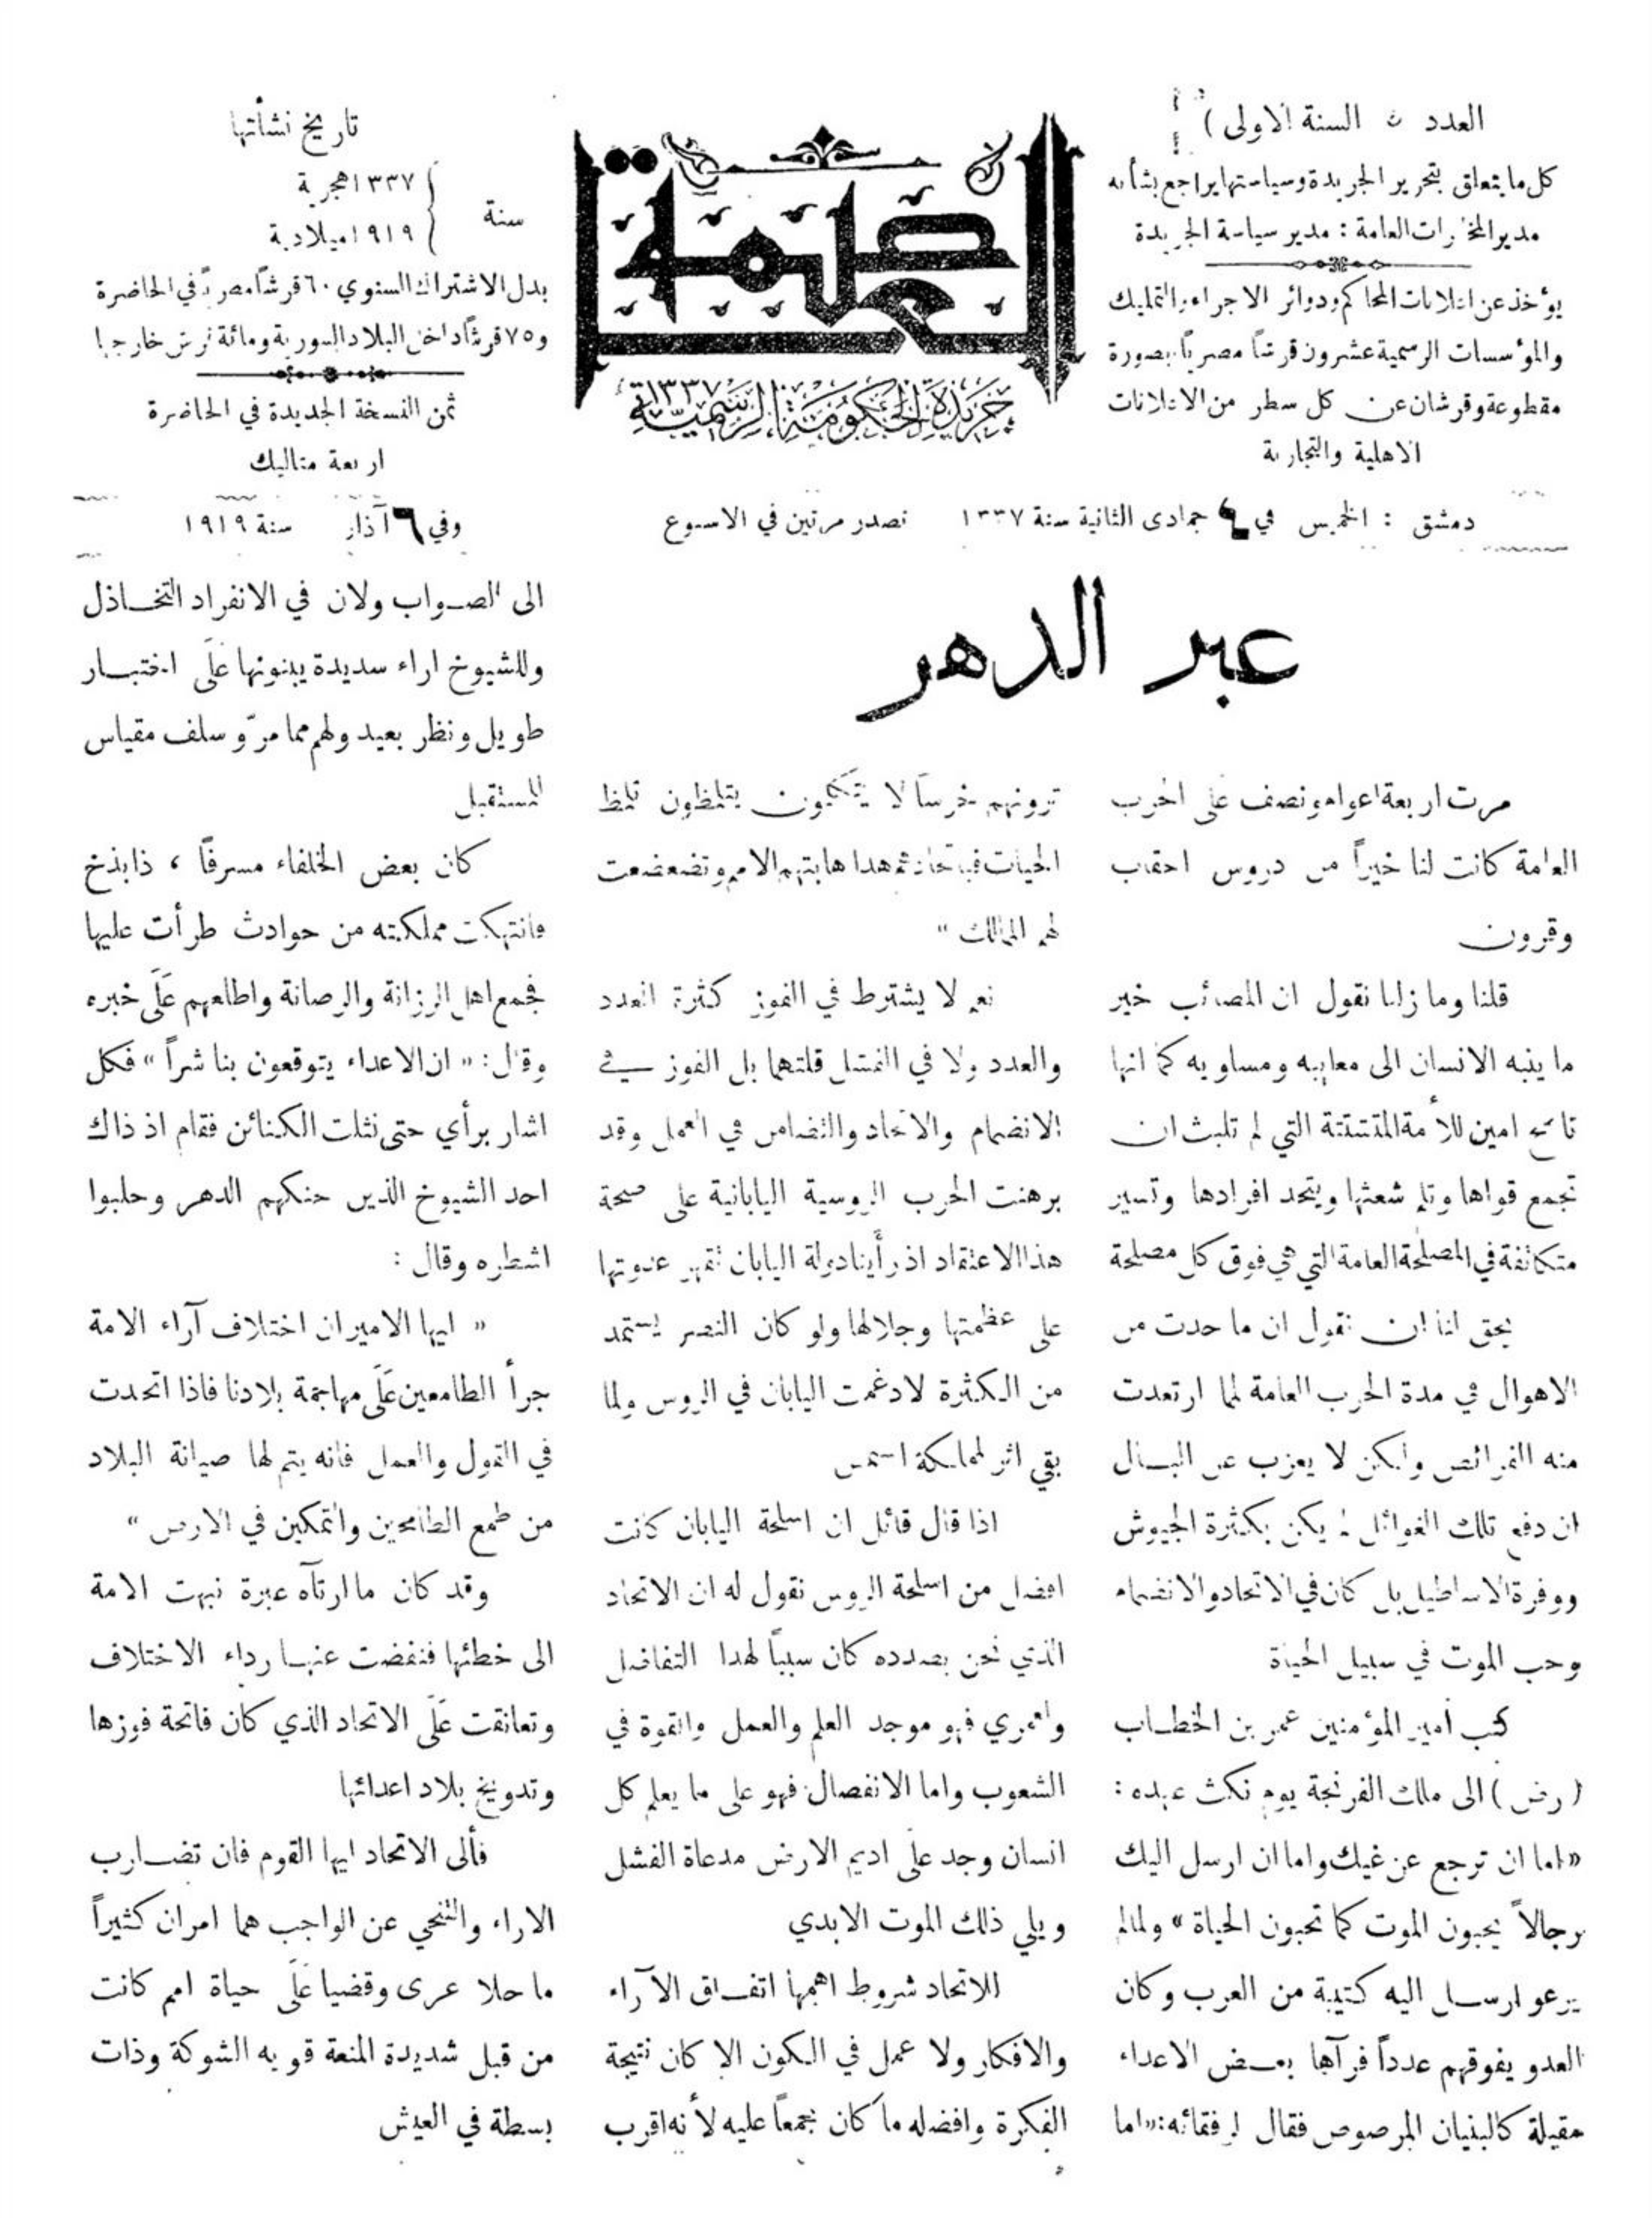 العدد السنة الاولى )
كل ما يتعلق بتحرير الجريدة وسياستها يراجع بشأنه
مدير المخابرات العامة : مدير سياسة الجريدة
يؤخذ عن اعلانات المحاكم ودوائر الاجراء والتمليك
والمؤسسات الرسمية عشرون قرشاً مصرياً بصورة
مقطوعة وقرشان عن كل سطر من الاعلانات
الاهلية والتجارية
العاصمة
جريدة الحكومة الرسمية ١٣٣٧
تاريخ نشأتها
سنة
١٣٣٧ هجرية
١٩١٩ ميلادية
بدل الاشتراك السنوي ٦٠ قرشاً مصرياً في الحاضرة
و ٧٥ قرشاً داخل البلاد السورية ومائة قرش خارجها
ثمن النسخة الجديدة في الحاضرة
اربعة متاليك
دمشق : الخميس في ٤ جمادى الثانية سنة ١٣٣٧ تصدر مرتين في الاسبوع وفي ٦ آذار سنة ١٩١٩
عبر الدهر
مرت اربعة اعوام ونصف على الحرب
العامة كانت لنا خيراً من دروس احقاب
وقرون
قلنا وما زلنا نقول ان المصائب خير
ما ينبه الانسان الى معايبه ومساويه كما انها
ناصح امين للأمة المتشتتة التي لم تلبث ان
تجمع قواها وتلم شعثها ويتحد افرادها وتسير
متكاتفة في المصلحة العامة التي هي فوق كل مصلحة
يحق لنا ان نقول ان ما حدث من
الاهوال في مدة الحرب العامة لما ارتعدت
منه الفرائص ولكن لا يعزب عن البال
ان دفع تلك الغوائل لم يكن بكثرة الجيوش
ووفرة الاساطيل بل كان في الاتحاد والانضمام
وحب الموت في سبيل الحياة
كتب أمير المؤمنين عمر بن الخطاب
( رض ) الى ملك الفرنجة يوم نكث عهده :
« اما ان ترجع عن غيك واما ان ارسل اليك
رجالاً يحبون الموت كما تحبون الحياة » ولما لم
يرعو ارسل اليه كتيبة من العرب وكان
العدو يفوقهم عدداً فرآها بعض الاعداء
مقبلة كالبنيان المرصوص فقال لرفقائه : « اما
ترونهم خرساً لا يتكلمون يتلظون تلمظ
الحيات هابتهم الامم وتضعضعت
لهم الممالك »
نعم لا يشترط في الفوز كثرة العدد
والعدد ولا في الفشل قلتهما بل الفوز في
الانضمام والاتحاد والتضامن في العمل وقد
برهنت الحرب الروسية اليابانية على صحة
هذا الاعتقاد اذ رأينا دولة اليابان تقهر عدوتها
على عظمتها وجلالها ولو كان النصر يستمد
من الكثرة لادغمت اليابان في الروس ولما
بقي اثر لمملكة الشمس
اذا قال قائل ان اسلحة اليابان كانت
افضل من اسلحة الروس نقول له ان الاتحاد
الذي نحن بصدده كان سبباً لهذا التفاضل
ولعمري فهو موجد العلم والعمل والقوة في
الشعوب واما الانفصال فهو على ما يعلم كل
انسان وجد على اديم الارض مدعاة الفشل
ويلي ذلك الموت الابدي
للاتحاد شروط اهمها اتفاق الآراء
والافكار ولا عمل في الكون الا كان نتيجة
الفكرة وافضله ما كان مجمعاً عليه لأنه اقرب
الى الصواب ولان في الانفراد التخاذل
وللشيوخ اراء سديدة يبنونها على اختبار
طويل ونظر بعيد ولهم مما مرّ وسلف مقياس
للمستقبل
كان بعض الخلفاء مسرفاً ، ذا بذخ
فانتهكت مملكته من حوادث طرأت عليها
فجمع اهل الرزانة والرصانة واطلعهم على خبره
وقال : « ان الاعداء يتوقعون بنا شراً » فكل
اشار برأي حتى نثلت الكنائن فقام اذ ذاك
احد الشيوخ الذين حنكهم الدهر وحلبوا
اشطره وقال :
« ايها الامير ان اختلاف آراء الامة
جرأ الطامعين على مهاجمة بلادنا فاذا اتحدت
في القول والعمل فانه يتم لها صيانة البلاد
من طمع الطامحين والتمكين في الارض »
وقد كان ما ارتآه عبرة نبهت الامة
الى خطئها فنفضت عنها رداء الاختلاف
وتعانقت على الاتحاد الذي كان فاتحة فوزها
وتدويخ بلاد اعدائها
فألى الاتحاد ايها القوم فان تضارب
الاراء والتنحي عن الواجب هما امران كثيراً
ما حلا عرى وقضيا على حياة امم كانت
من قبل شديدة المنعة قويه الشوكة وذات
بسطة في العيش